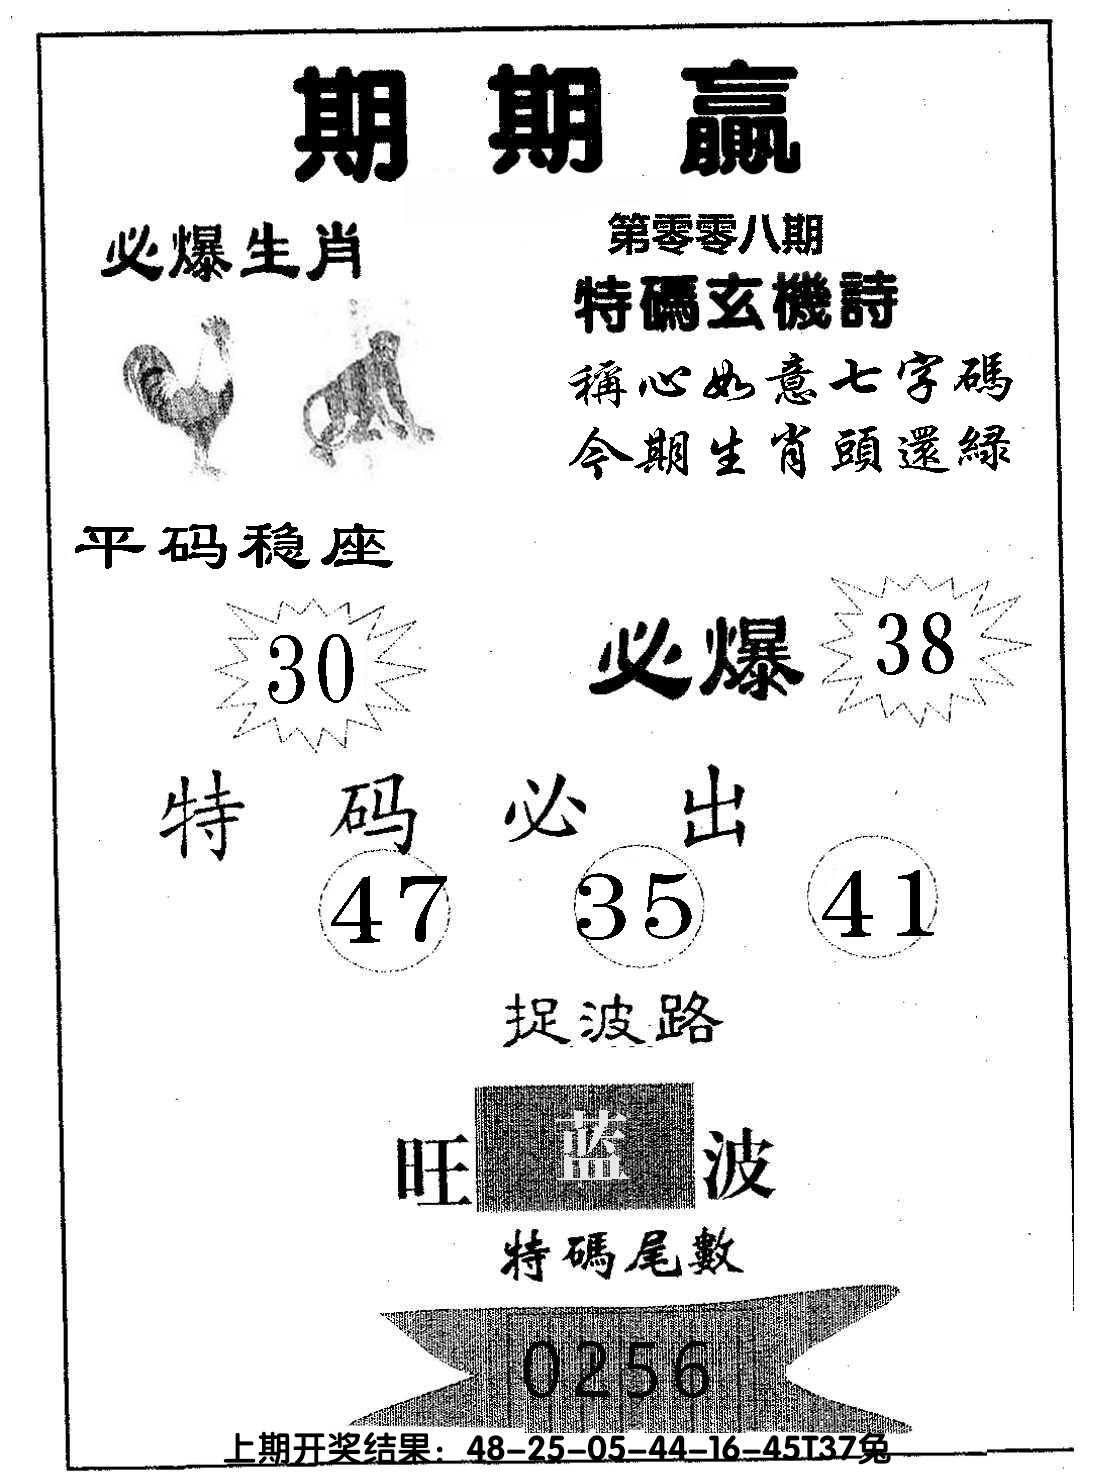 期期贏
必爆生肖
第零零八期
特碼玄機詩
稱心如意七字碼
今期生肖頭還緑
平码稳座
30
必爆 38
特码必出
47 35 41
捉波路
旺蓝波
特碼尾數
0256
上期开奖结果：48-25-05-44-16-45T37兔